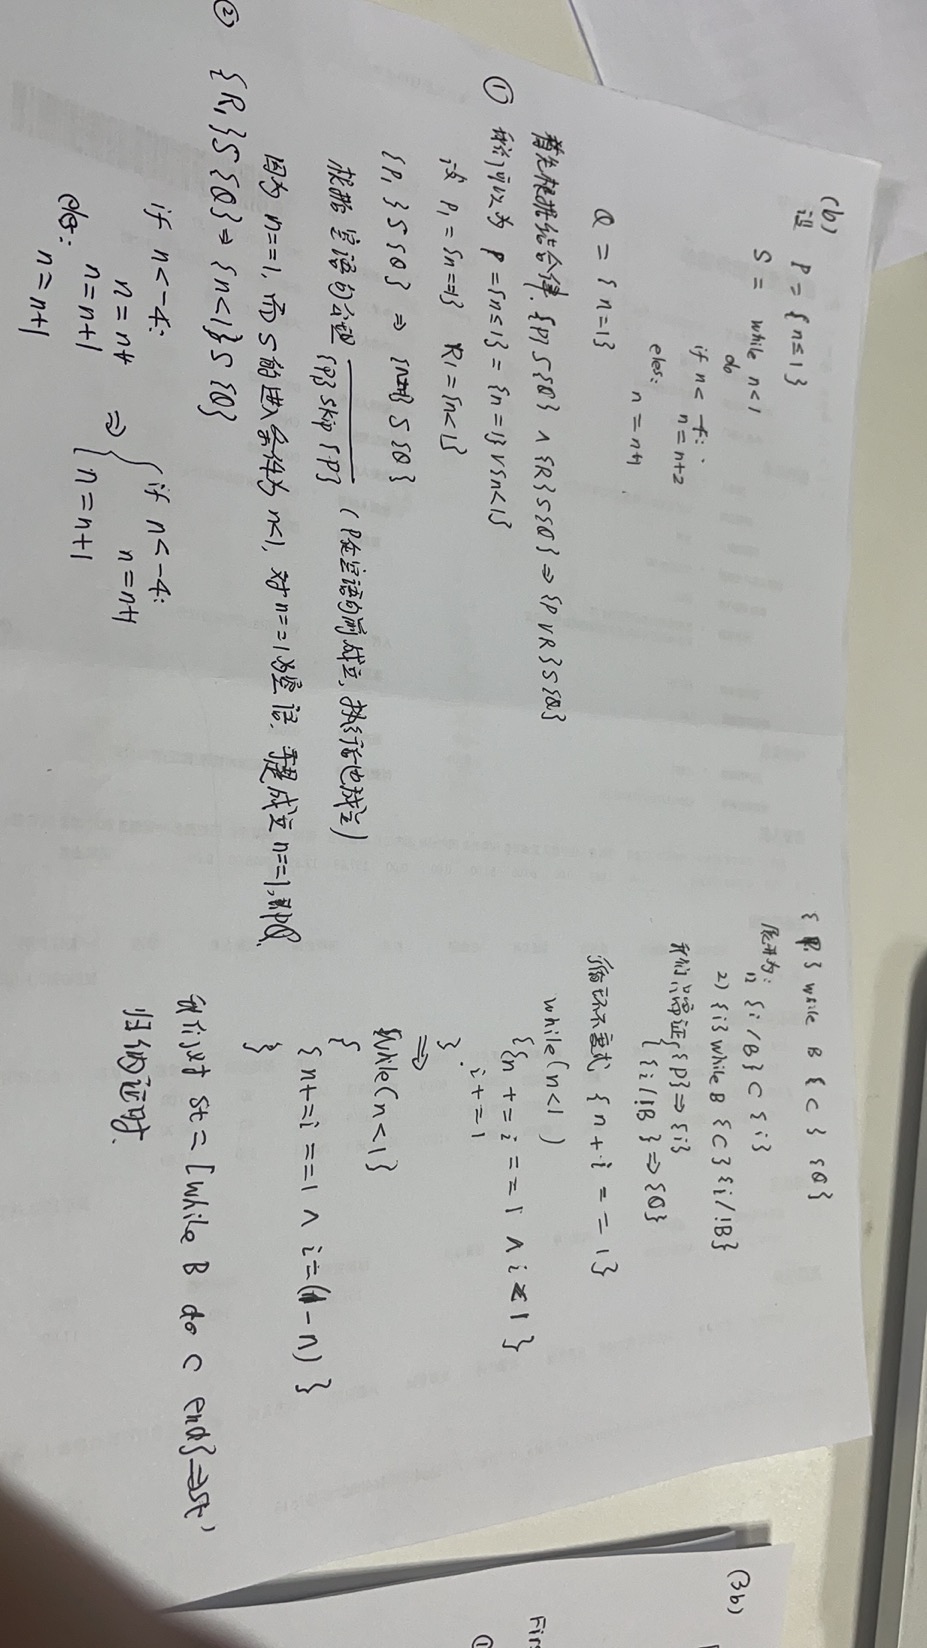 (b)
设 P = {n≤1}
S = while n<1
do
if n < -4:
n=n+2
eles:
n=n+1
Q = {n=1}
首先根据结合律. {P}S{Q} ∧ {R}S{Q} ⇒ {P∨R}S{Q}
① 我们可以为 P={n≤1} = {n=1}∨{n<1}
设 P₁={n==1} R₁={n<1}
{P₁}S{Q} ⇒ S{Q}
根据空语句公理 {P} skip {P} (P在空语句前成立, 执行后也成立)
因为 n==1, 而S的进入条件为 n<1, 对n==1为空语, 成立 n==1, Q.
② {R₁}S{Q} ⇒ {n<1}S{Q}
if n<-4:
n=n+
n=n+1
eles:
n=n+1
⇒ { if n<-4:
n=n+1
n=n+1
{P} while B {C} {Q}
展开为:
1) {i/B} C {i}
2) {i} while B {C} {i/!B}
我们只需证 {P}⇒{i}
{i/!B} ⇒ {Q}
循环不变式 {n+i==1}
while(n<1)
{{n+=i==1 ∧ i<1}
i+=1
}
⇒
while(n<1}
{
{n+=i==1 ∧ i=(1-n)}
}
我们对 st=[while B do C end}⇒st'
归纳证明.
(3b)
①